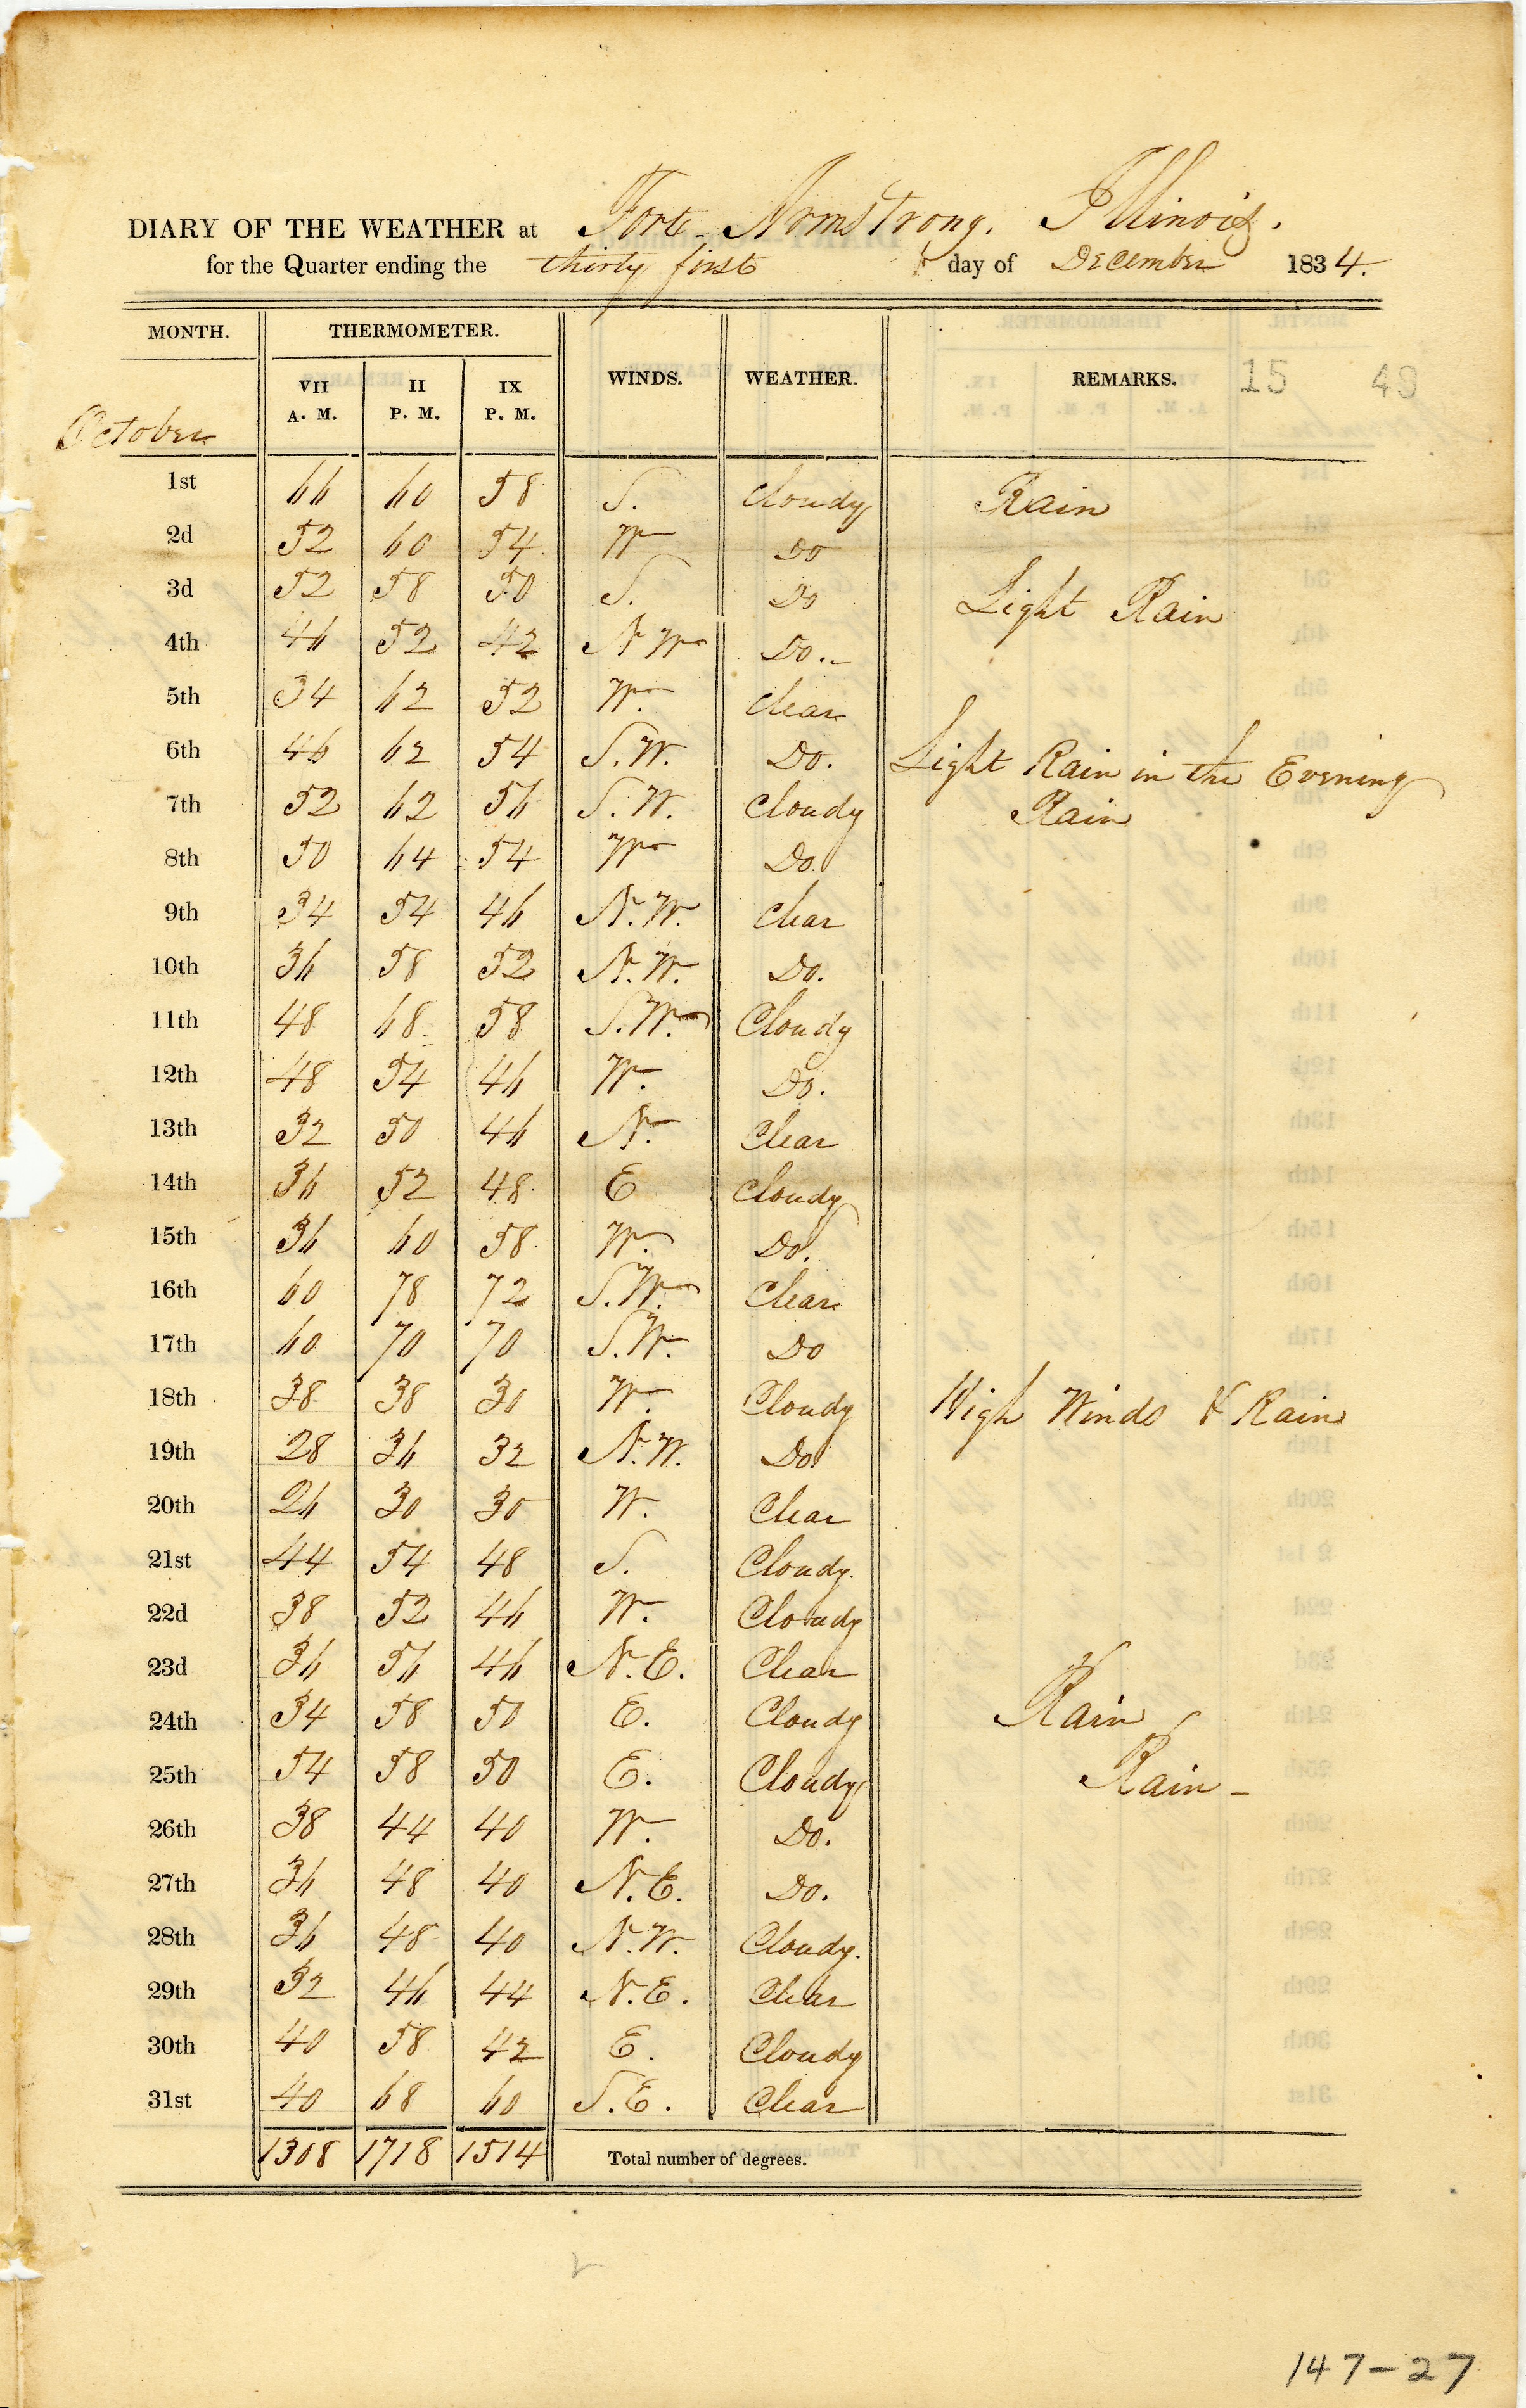 DIARY OF THE WEATHER at Fort Armstrong. Illinois.
for the Quarter ending the thirty first day of December 1834.
MONTH. THERMOMETER. WINDS. WEATHER. REMARKS. 15 49
VII A. M. II P. M. IX P. M.
October
1st 66 60 58 S. Cloudy Rain
2d 52 60 54 W Do
3d 52 58 50 S. Do Light Rain
4th 46 52 42 N W Do.
5th 34 62 52 W. Clear
6th 46 62 54 S.W. Do. Light Rain in the Evening
7th 52 62 56 S.W. Cloudy Rain
8th 50 64 54 W Do.
9th 34 54 46 N.W. Clear
10th 36 58 52 N.W. Do.
11th 48 68 58 S.W. Cloudy
12th 48 54 46 W. Do.
13th 32 50 46 N. Clear
14th 36 52 48 E Cloudy
15th 36 60 58 W. Do.
16th 60 78 72 S.W. Clear
17th 60 70 70 S.W. Do
18th 38 38 30 W. Cloudy High Winds & Rain
19th 28 36 32 N.W. Do.
20th 26 30 30 W. Clear
21st 44 54 48 S. Cloudy.
22d 38 52 46 W. Cloudy
23d 36 56 46 N.E. Clear
24th 34 58 50 E. Cloudy Rain
25th 54 58 50 E. Cloudy Rain -
26th 38 44 40 W. Do.
27th 36 48 40 N.E. Do.
28th 36 48 40 N.W. Cloudy.
29th 32 46 44 N.E. Clear
30th 40 58 42 E. Cloudy
31st 40 68 60 S.E. Clear
1308 1718 1514 Total number of degrees.
147-27